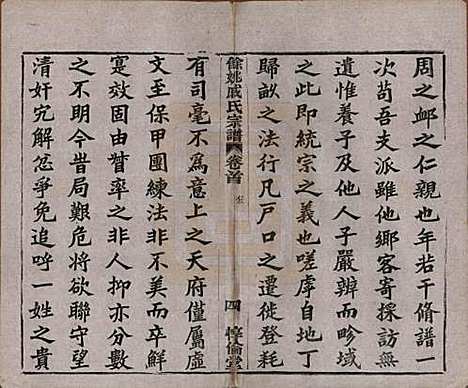 周之卹之仁親也年若干脩譜一
次苟吾支派雖他鄉客寄採訪無
遺惟養子及他人子嚴辨而畛域
之此即統宗之義也嗟虖自地丁
歸畝之法行凡戶口之遷徙登耗
餘姚戚氏宗譜 卷首 四 惇倫堂
有司毫不爲意上之天府僅屬虛
文至保甲團練法非不美而卒鮮
寔效固由督率之非人抑亦分數
之不明今昔局難危將欲聯守望
清奸宄解忿爭免追呼一姓之貴